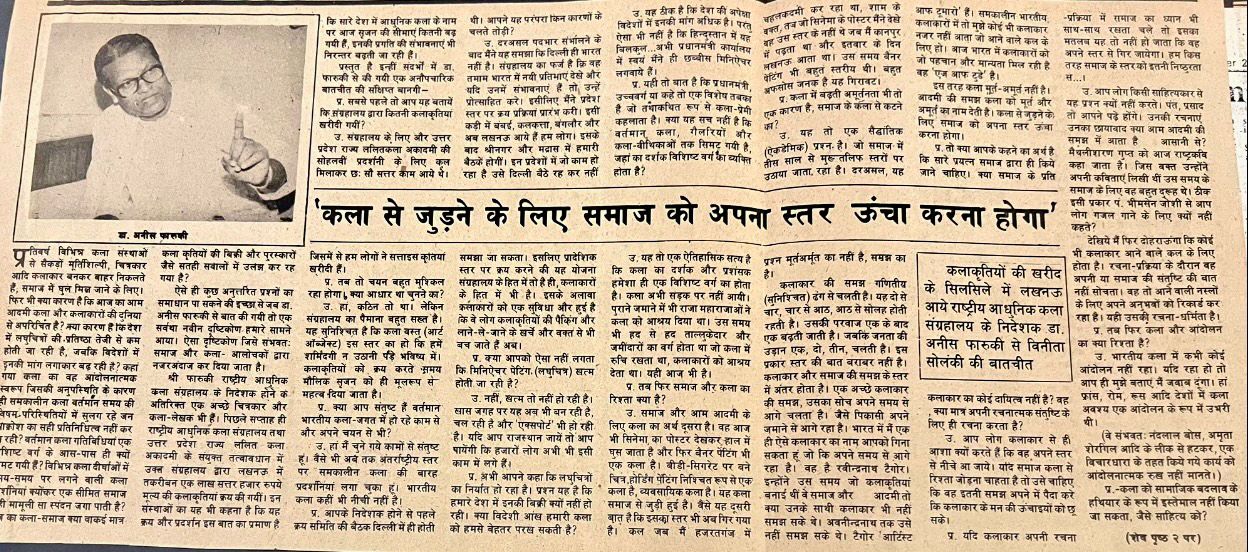 डा. अनीस फारुकी
'कला से जुड़ने के लिए समाज को अपना स्तर ऊंचा करना होगा'
प्रतिवर्ष विभिन्न कला संस्थाओं
से सैकड़ों मूर्तिशिल्पी, चित्रकार
आदि कलाकार बनकर बाहर निकलते
हैं, समाज में घुल मिल जाने के लिए।
फिर भी क्या कारण है कि आज का आम
आदमी कला और कलाकारों की दुनिया
से अपरिचित है? क्या कारण है कि देश
में लघुचित्रों की प्रतिष्ठा तेजी से कम
होती जा रही है, जबकि विदेशों में
इनकी मांग लगाकार बढ़ रही है? कहां
गया कला का वह आंदोलनात्मक
स्वरूप जिसकी अनुपस्थिति के कारण
ही समकालीन कला वर्तमान समय की
विषम-परिस्थितियों में सुलग रहे जन
आक्रोश का सही प्रतिनिधित्व नहीं कर
रही? वर्तमान कला गतिविधियां एक
विशिष्ट वर्ग के आस-पास ही क्यों
सिमट गयी हैं? विभिन्न कला दीर्घाओं में
समय-समय पर लगने वाली कला
प्रदर्शनियां क्योंकर एक सीमित समाज
ही मामूली सा स्पंदन जगा पाती हैं?
का कला-समाज क्या वाकई मात्र
कला कृतियों की बिक्री और पुरस्कारों
जैसे सतही सवालों में उलझ कर रह
गया है?
ऐसे ही कुछ अनुत्तरित प्रश्नों का
समाधान पा सकने की इच्छा से जब डा.
अनीस फारुकी से बात की गयी तो एक
सर्वथा नवीन दृष्टिकोण हमारे सामने
आया। ऐसा दृष्टिकोण जिसे संभवतः
समाज और कला- आलोचकों द्वारा
नजरअंदाज कर दिया जाता है।
श्री फारुकी राष्ट्रीय आधुनिक
कला संग्रहालय के निदेशक होने के
अतिरिक्त एक अच्छे चित्रकार और
कला-लेखक भी हैं। पिछले सप्ताह ही
राष्ट्रीय आधुनिक कला संग्रहालय तथा
उत्तर प्रदेश राज्य ललित कला
अकादमी के संयुक्त तत्वावधान में
उक्त संग्रहालय द्वारा लखनऊ में
तकरीबन एक लाख सत्तर हजार रुपये
मूल्य की कलाकृतियां क्रय की गयीं। इन
संस्थाओं का यह भी कहना है कि यह
क्रय और प्रदर्शन इस बात का प्रमाण है
कि सारे देश में आधुनिक कला के नाम
पर आज सृजन की सीमाएं कितनी बढ़
गयी हैं, इनकी प्रगति की संभावनाएं भी
निरन्तर बढ़ती जा रही हैं।
प्रस्तुत है इन्हीं संदर्भों में डा.
फारुकी से की गयी एक अनौपचारिक
बातचीत की संक्षिप्त बानगी—
प्र. सबसे पहले तो आप यह बतायें
कि संग्रहालय द्वारा कितनी कलाकृतियां
खरीदी गयीं?
उ. संग्रहालय के लिए और उत्तर
प्रदेश राज्य ललितकला अकादमी की
सोहलवीं प्रदर्शनी के लिए कुल
मिलाकर छः सौ सत्तर काम आये थे।
जिसमें से हम लोगों ने सत्ताइस कृतियां
खरीदी हैं।
प्र. तब तो चयन बहुत मुश्किल
रहा होगा, क्या आधार थी चुनने का?
उ. हां, कठिन तो था। लेकिन
संग्रहालय का पैमाना बहुत सख्त है।
यह सुनिश्चित है कि कला वस्तु (आर्ट
ऑब्जेक्ट) इस स्तर का हो कि हमें
शर्मिंदगी न उठानी पड़े भविष्य में।
कलाकृतियों को क्रय करते समय
मौलिक सृजन को ही मूलरूप से
महत्व दिया जाता है।
प्र. क्या आप संतुष्ट हैं वर्तमान
भारतीय कला-जगत में हो रहे काम से
और अपने चयन से भी?
उ. हां मैं चुने गये कामों से संतुष्ट
हूं। वैसे भी अब तक अंतर्राष्ट्रीय स्तर
पर समकालीन कला की बारह
प्रदर्शनियां लगा चुका हूं। भारतीय
कला कहीं भी नीची नहीं है।
प्र. आपके निदेशक होने से पहले
क्रय समिति की बैठक दिल्ली में ही होती
थी। आपने यह परंपरा किन कारणों के
चलते तोड़ी?
उ. दरअसल पदभार संभालने के
बाद मैंने यह समझा कि दिल्ली ही भारत
नहीं है। संग्रहालय का फर्ज है कि वह
तमाम भारत में नयी प्रतिभाएं देखे और
यदि उनमें संभावनाएं हैं तो उन्हें
प्रोत्साहित करे। इसीलिए मैंने प्रदेश
स्तर पर क्रय प्रक्रिया प्रारंभ करी। इसी
कड़ी में बंबई, कलकत्ता, बंगलौर और
अब लखनऊ आये हैं हम लोग। इसके
बाद श्रीनगर और मद्रास में हमारी
बैठकें होंगीं। इन प्रदेशों में जो काम हो
रहा है उसे दिल्ली बैठे रह कर नहीं
समझा जा सकता। इसलिए प्रादेशिक
स्तर पर क्रय करने की यह योजना
संग्रहालय के हित में तो है ही, कलाकारों
के हित में भी है। इसके अलावा
कलाकारों को एक सुविधा और हुई है
कि वे लोग कलाकृतियों की पैकिंग और
लाने-ले-जाने के खर्चे और वक्त से भी
बच जाते हैं अब।
प्र. क्या आपको ऐसा नहीं लगता
कि मिनिऐचर पेंटिंग. (लघुचित्र) खत्म
होती जा रही है?
उ. नहीं, खत्म तो नहीं हो रही है।
खास जगह पर यह अब भी बन रही है,
चल रही है और 'एक्सपोर्ट' भी हो रही
है। यदि आप राजस्थान जायें तो आप
पायेंगी कि हजारों लोग अभी भी इसी
काम में लगे हैं।
प्र. अभी आपने कहा कि लघुचित्रों
का निर्यात हो रहा है। प्रश्न यह है कि
हमारे देश में इनकी बिक्री क्यों नहीं हो
रही। क्या विदेशी आंख हमारी कला
को हमसे बेहतर परख सकती है?
उ. यह ठीक है कि देश की अपेक्षा
विदेशों में इनकी मांग अधिक है। परंतु
ऐसा भी नहीं है कि हिन्दुस्तान में यह
बिलकुल...अभी प्रधानमंत्री कार्यालय
में स्वयं मैंने ही छब्बीस मिनिऐचर
लगवाये हैं।
प्र. यही तो बात है कि प्रधानमंत्री,
उच्चवर्ग या कहें तो एक विशेष तबका
है जो तथाकथित रूप से कला-प्रेमी
कहलाता है। क्या यह सच नहीं है कि
वर्तमान कला, गैलरियों और
कला-वीथिकाओं तक सिमट गयी है,
जहां का दर्शक विशिष्ट वर्ग का व्यक्ति
होता है?
उ. यह तो एक ऐतिहासिक सत्य है
कि कला का दर्शक और प्रशंसक
हमेशा ही एक विशिष्ट वर्ग का होता
है। कला अभी सड़क पर नहीं आयी।
पुराने जमाने में भी राजा महाराजाओं ने
कला को आश्रय दिया था। उस समय
भी हद से हद ताल्लुकेदार और
जमींदारों का वर्ग होता था जो कला में
रुचि रखता था, कलाकारों को आश्रय
देता था। यही आज भी है।
प्र. तब फिर समाज और कला का
रिश्ता क्या है?
उ. समाज और आम आदमी के
लिए कला का अर्थ दूसरा है। वह आज
भी सिनेमा का पोस्टर देखकर हाल में
घुस जाता है और फिर बैनर पेंटिंग भी
एक कला है। बीड़ी-सिगरेट पर बने
चित्र,होर्डिंग पेंटिंग निश्चित रूप से एक
कला है, व्यवसायिक कला है। यह कला
समाज से जुड़ी हुई है। वैसे यह दूसरी
बात है कि इसका स्तर भी अब गिर गया
है। कल जब मैं हजरतगंज में
चहलकदमी कर रहा था, शाम के
वक्त, तब जो सिनेमा के पोस्टर मैंने देखे
उस स्तर के नहीं थे जब मैं कानपुर
में पढ़ता था और इतवार के दिन
लखनऊ आता था। उस समय बैनर
पेंटिंग भी बहुत स्तरीय थी। बहुत
अफसोस जनक है यह गिरावट।
प्र. कला में बढ़ती अमूर्तनता भी तो
एक कारण है, समाज के कला से कटने
का?
उ. यह तो एक सैद्धांतिक
(ऐकडेमिक) प्रश्न है। जो समाज में
तीस साल से मुख्तलिफ स्तरों पर
उठाया जाता रहा है। दरअसल, यह
प्रश्न मूर्तअमूर्त का नहीं है, समझ का
है।
कलाकार की समझ गणितीय
(सुनिश्चित) ढंग से चलती है। यह दो से
चार, चार से आठ, आठ से सोलह होती
रहती है। उसकी परवाज एक के बाद
एक बढ़ती जाती है। जबकि जनता की
उड़ान एक, दो, तीन, चलती है। इस
प्रकार स्तर की बात बराबर नहीं है।
कलाकार और समाज की समझ के स्तर
में अंतर होता है। एक अच्छे कलाकार
की समझ, उसका सोच अपने समय से
आगे चलता है। जैसे पिकासो अपने
जमाने से आगे रहा है। भारत में मैं एक
ही ऐसे कलाकार का नाम आपको गिना
सकता हूं जो कि अपने समय से आगे
रहा है। वह है रवीन्द्रनाथ टैगोर।
इन्होंने उस समय जो कलाकृतियां
बनाई थीं वे समाज और आदमी तो
क्या उनके साथी कलाकार भी नहीं
समझ सके थे। अवनीन्द्रनाथ तक उसे
नहीं समझ सके थे। टैगोर 'आर्टिस्ट
आफ टुमारो' हैं। समकालीन भारतीय
कलाकारों में तो मुझे कोई भी कलाकार
नजर नहीं आता जो आने वाले कल के
लिए हो। आज भारत में कलाकारों को
जो पहचान और मान्यता मिल रही है
वह 'एज आफ टुडे' है।
इस तरह कला मूर्त-अमूर्त नहीं है।
आदमी की समझ कला को मूर्त और
अमूर्त का नाम देती है। कला से जुड़ने के
लिए समाज को अपना स्तर ऊंचा
करना होगा।
प्र. तो क्या आपके कहने का अर्थ है
कि सारे प्रयत्न समाज द्वारा ही किये
जाने चाहिए। क्या समाज के प्रति
कलाकृतियों की खरीद
के सिलसिले में लखनऊ
आये राष्ट्रीय आधुनिक कला
संग्रहालय के निदेशक डा.
अनीस फारुकी से विनीता
सोलंकी की बातचीत
कलाकार का कोई दायित्व नहीं है? वह
क्या मात्र अपनी रचनात्मक संतुष्टि के
लिए ही रचना करता है?
उ. आप लोग कलाकार से ही
आशा क्यों करते हैं कि वह अपने स्तर
से नीचे आ जाये। यदि समाज कला से
रिश्ता जोड़ना चाहता है तो उसे चाहिए
कि वह इतनी समझ अपने में पैदा करे
कि कलाकार के मन की ऊंचाइयों को छू
सके।
प्र. यदि कलाकार अपनी रचना
-प्रक्रिया में समाज का ध्यान भी
साथ-साथ रखता चले तो इसका
मतलब यह तो नहीं हो जाता कि वह
अपने स्तर से गिर जायेगा। हम किस
तरह समाज के स्तर को इतनी निष्ठुरता
से...।
उ. आप लोग किसी साहित्यकार से
यह प्रश्न क्यों नहीं करते। पंत, प्रसाद
तो आपने पढ़े होंगे। उनकी रचनाएं
उनका छायावाद क्या आम आदमी की
समझ में आता है आसानी से?
मैथलीशरण गुप्त को आज राष्ट्रकवि
कहा जाता है। जिस वक्त उन्होंने
अपनी कविताएं लिखीं थीं उस समय के
समाज के लिए वह बहुत दुरूह थे। ठीक
इसी प्रकार पं. भीमसेन जोशी से आप
लोग गजल गाने के लिए क्यों नहीं
कहते?
देखिये मैं फिर दोहराऊंगा कि कोई
भी कलाकार आने वाले कल के लिए
होता है। रचना-प्रक्रिया के दौरान वह
अपनी या समाज की संतुष्टि की बात
नहीं सोचता। वह तो आने वाली नस्लों
के लिए अपने अनुभवों को रिकार्ड कर
रहा है। यही उसकी रचना-धर्मिता है।
प्र. तब फिर कला और आंदोलन
का क्या रिश्ता है?
उ. भारतीय कला में कभी कोई
आंदोलन नहीं रहा। यदि रहा हो तो
आप ही मुझे बताएं मैं जवाब दूंगा। हां
फ्रांस, रोम, रूस आदि देशों में कला
अवश्य एक आंदोलन के रूप में उभरी
थी।
(वे संभवतः नंदलाल बोस, अमृता
शेरगिल आदि के लीक से हटकर, एक
विचारधारा के तहत किये गये कार्य को
आंदोलनात्मक रुख नहीं मानते।)
प्र.-कला को सामाजिक बदलाव के
हथियार के रूप में इस्तेमाल नहीं किया
जा सकता, जैसे साहित्य को?
(शेष पृष्ठ २ पर)